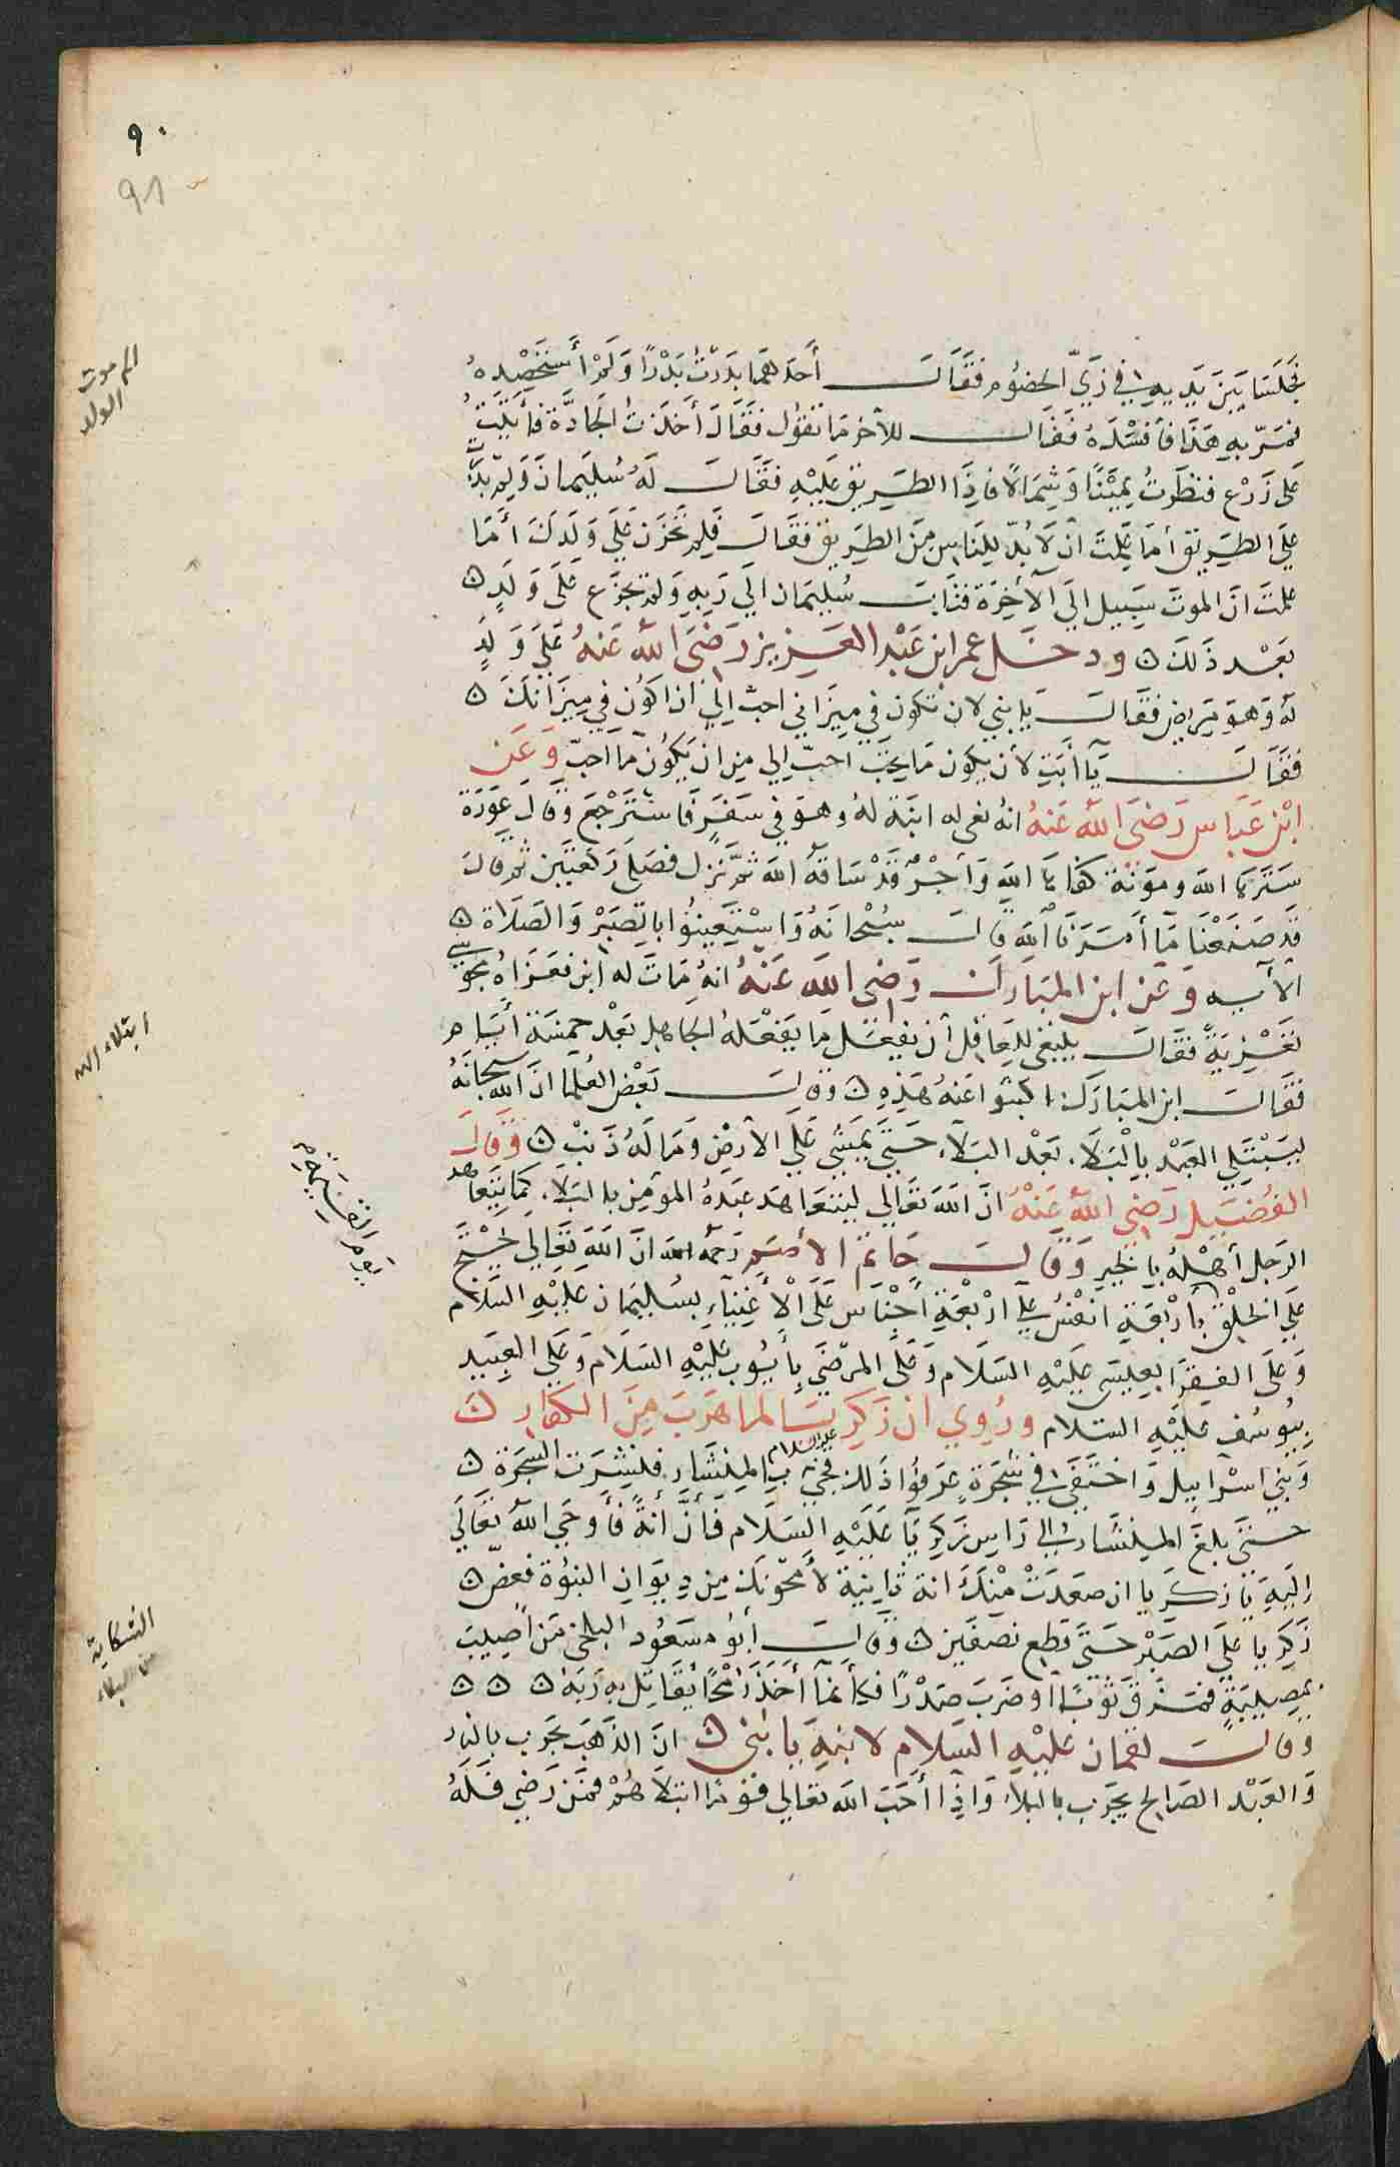 ٩٠
91
فجلسا بين يديه في زي الخصوم فقال أحدهما بدرت بدرا ولم أستحصده
فمر به هذا فأفسده فقال للآخر ما تقول فقال أخذت الجادة فأتيت
على زرع فنظرت يمينا وشمالا فاذا الطريق عليه فقال له سليمان ولم بدرت
على الطريق أما علمت ان لا بد للناس من الطريق فقال فلم تحزن على ولدك أما
علمت ان الموت سبيل الى الآخرة فتاب سليمان الى ربه ولم يجزع على ولد
بعد ذلك ودخل عمر ابن عبد العزيز رضى الله عنه على ولد
له وهو مريض فقال يا بني لان تكون في ميزاني احب الي ان اكون في ميزانك
فقال يا أبت لأن يكون ما يحب احب الي من ان يكون ما احب وعن
ابن عباس رضى الله عنه انه نعى له ابنة له وهو في سفر فاسترجع وقال عورة
سترها الله ومونة كفاها الله وأجر قد ساقه الله ثم نزل فصلى ركعتين ثم قال
قد صنعنا ما أمرنا الله قال سبحانه واستعينوا بالصبر والصلاة
الآيه وعن ابن المبارك رضى الله عنه انه مات له ابن فعزاه مجوسي
تعزية فقال ينبغى للعاقل أن يفعل ما يفعله الجاهل بعد خمسة أيام
فقال ابن المبارك اكتبوا عنه هذه وقال بعض العلما ان الله سبحانه
ليبتلي العبد بالبلاء بعد البلاء حتى يمشي على الأرض وما له ذنب وقال
الفضيل رضى الله عنه ان الله تعالى ليتعاهد عبده المؤمن بالبلاء كما يتعاهد
الرجل أهله بالخير وقال حاتم الأصم رحمه الله ان الله تعالى ليحتج
على الخلق بأربعة انفس على اربعة أجناس على الأغنياء بسليمان عليه السلام
وعلى الفقرا بعيسى عليه السلام وعلى المرضى بأيوب عليه السلام وعلى العبيد
بيوسف عليه السلام وروي ان زكريا لما هرب من الكفار
وبني اسرائيل واختفى في شجرة عرفوا ذلك فجئ بالمنشار فنشرت الشجرة
عليه السلام
حتى بلغ المنشار الى راس زكريا عليه السلام فأن أنة فأوحى الله تعالى
إليه يا زكريا ان صعدت منك انة ثانية لأمحونك من ديوان النبوة فعض
زكريا على الصبر حتى قطع نصفين وقال أبو مسعود البلخي من أصيب
بمصيبة فمزق ثوبا او ضرب صدرا فكأنما أخذ رمحا يقاتل به ربه
وقال لقمان عليه السلام لابنه يا بني ان الذهب يجرب بالنار
والعبد الصالح يجرب بالبلاء واذا أحب الله تعالى قوما ابتلاهم فمن رضي فله
الم موت
الولد
ابتلاء الله
الشكاية
من البلاء